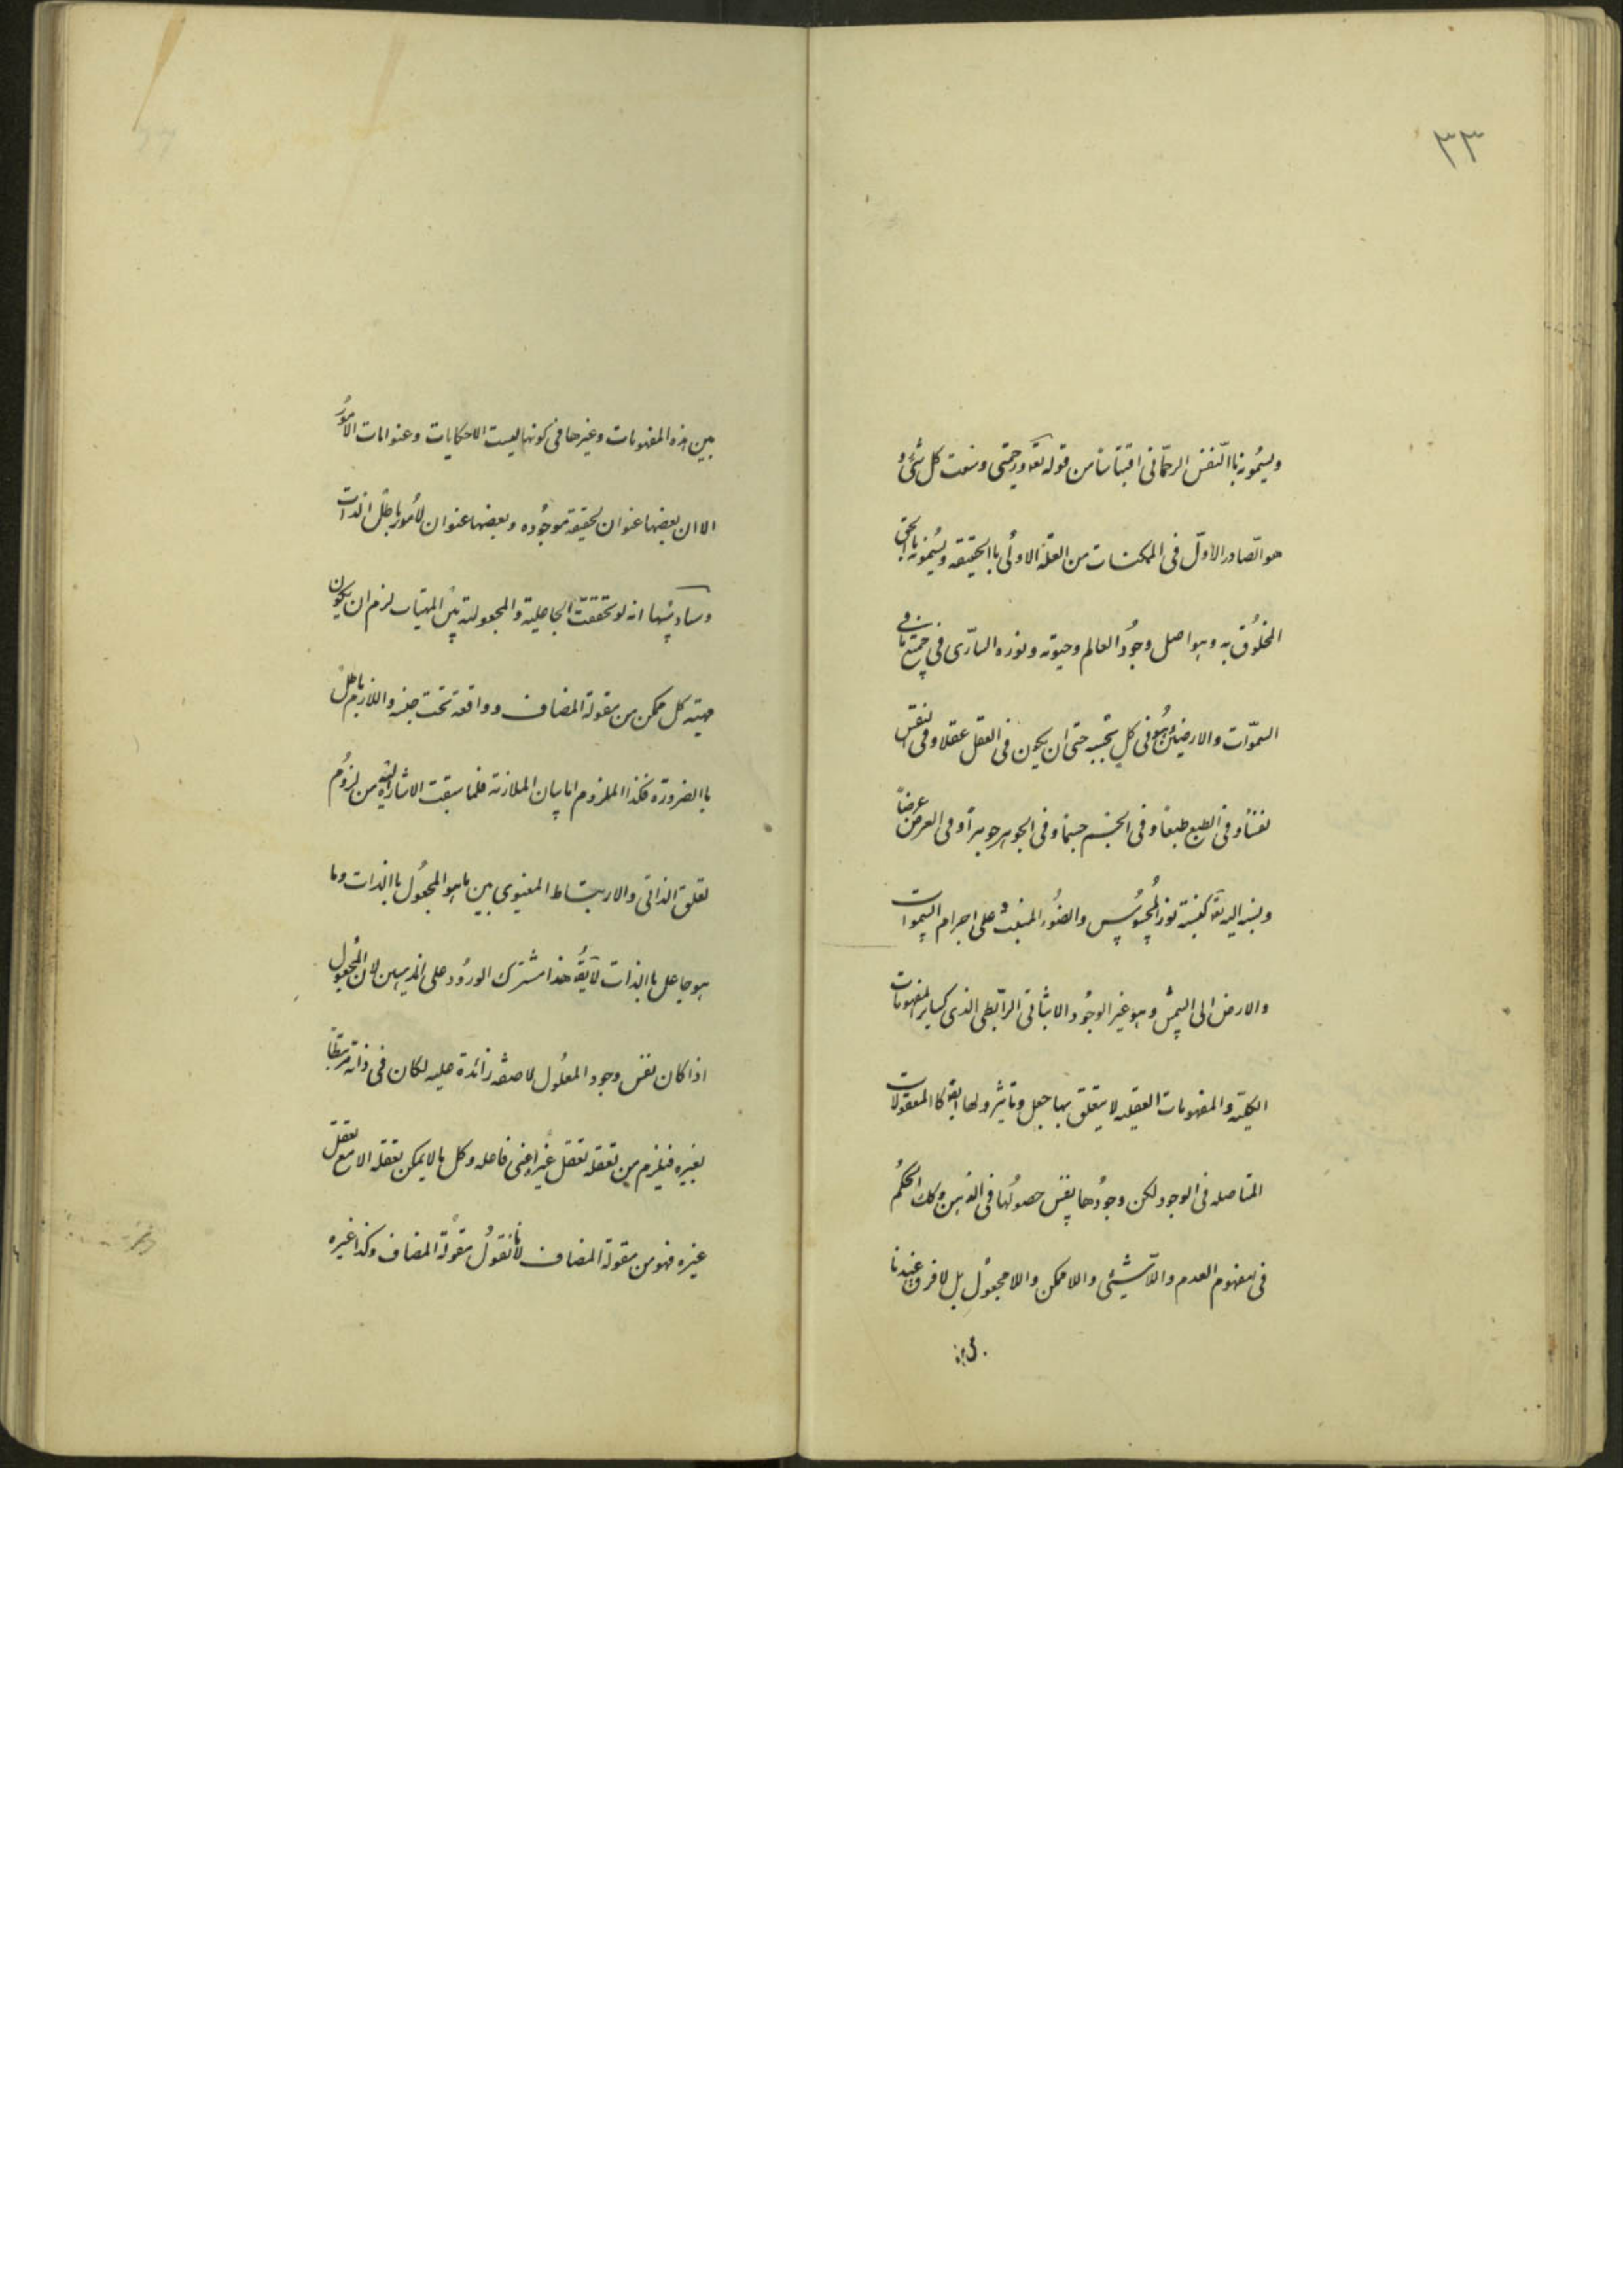 ٣٣
ويسمونه باالنفس الرحمانى اقتباسا من قوله تعه ورحمتى وسعت كل شئ و
هو الصادر الاول فى الممكنات من العلة الاولى باالحقيقه ويسمونه بالحق
المخلوق به وهو اصل وجود العالم وحيوته ونوره السارى فى جميع ما فى
السموات والارضين وهو فى كل بحسبه حتى ان يكون فى العقل عقلا وفى النفس
نفسا وفى الطبع طبعا وفى الجسم جسما وفى الجوهر جوهرا وفى العرض عرضاً
ونسبته اليه تعه كنسبة نور المحسوس والضوء المنبث على اجرام السموات
والارض الى الشمس وهو غير الوجود الاثباتى الرابطى الذى كساير المفهومات
الكلية والمفهومات العقليه لا يتعلق بها جعل وتاثير ولها ايضا كاالمعقولات
المتاصله فى الوجود لكن وجودها نفس حصولها فى الذهن وكك الحكم
فى مفهوم العدم واللاشيئى واللاممكن واللامجعول بل لا فرق عندنا
بين هذه المفهومات وغيرها فى كونها ليست الا حكايات وعنوانات الامور
الا ان بعضها عنوان لحقيقة موجوده وبعضها عنوان لامور باطل الذات
وسادسها انه لو تحققت الجاعلية والمجعولية بين المهيات لزم ان يكون
مهية كل ممكن من مقولة المضاف وواقعة تحت جنسه واللازم باطل
باالضرورة فكذا الملزوم اما بيان الملازمة فلما سبقت الاشارة اليه من لزوم
تعلق الذاتى والارتباط المعنوى بين ما هو المجعول باالذات وما
هو جاعل باالذات لا يقه هذا مشترك الورود على المذهبين لان المجعول
اذا كان نفس وجود المعلول لا صفة زائدة عليه لكان فى ذاته مرتبطا
بغيره فيلزم من تعقله تعقل غيره اعنى فاعله وكل ما لا يمكن تعقله الا مع تعقل
غيره فهو من مقولة المضاف لانا نقول مقولة المضاف وكذا غيره